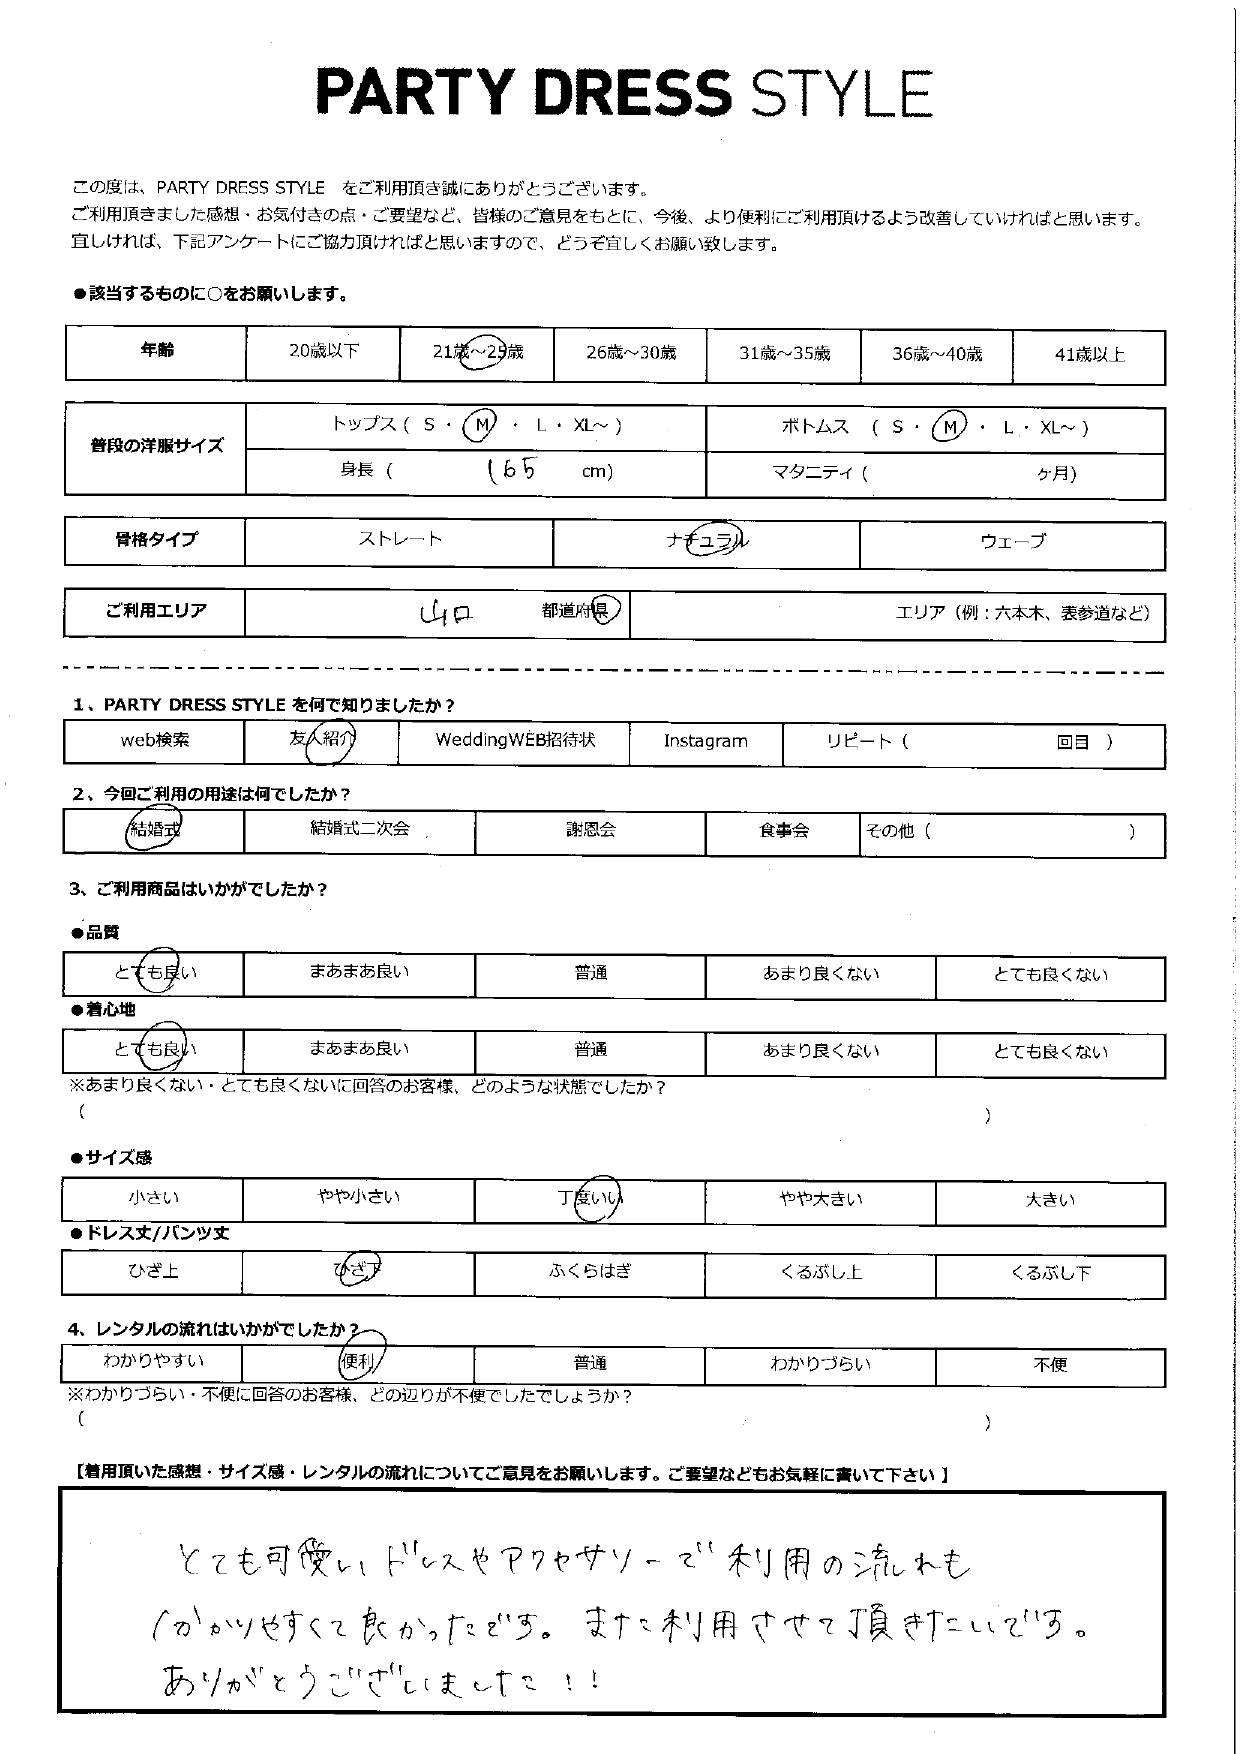 PARTY DRESS STYLE
この度は、PARTY DRESS STYLE をご利用頂き誠にありがとうございます。
ご利用頂きました感想・お気付きの点・ご要望など、皆様のご意見をもとに、今後、より便利にご利用頂けるよう改善していければと思います。
宜しければ、下記アンケートにご協力頂ければと思いますので、どうぞ宜しくお願い致します。
●該当するものに○をお願いします。
年齢 20歳以下 21歳～25歳 26歳～30歳 31歳～35歳 36歳～40歳 41歳以上
普段の洋服サイズ トップス ( S ・ M ・ L ・ XL～ ) ボトムス ( S ・ M ・ L ・ XL～ )
身長 ( 165 cm) マタニティ ( ヶ月)
骨格タイプ ストレート ナチュラル ウェーブ
ご利用エリア 山口 都道府県 エリア（例：六本木、表参道など）
1、PARTY DRESS STYLE を何で知りましたか？
web検索 友人紹介 WeddingWEB招待状 Instagram リピート ( 回目 )
2、今回ご利用の用途は何でしたか？
結婚式 結婚式二次会 謝恩会 食事会 その他 ( )
3、ご利用商品はいかがでしたか？
●品質
とても良い まあまあ良い 普通 あまり良くない とても良くない
●着心地
とても良い まあまあ良い 普通 あまり良くない とても良くない
※あまり良くない・とても良くないに回答のお客様、どのような状態でしたか？
( )
●サイズ感
小さい やや小さい 丁度いい やや大きい 大きい
●ドレス丈/パンツ丈
ひざ上 ひざ下 ふくらはぎ くるぶし上 くるぶし下
4、レンタルの流れはいかがでしたか？
わかりやすい 便利 普通 わかりづらい 不便
※わかりづらい・不便に回答のお客様、どの辺りが不便でしたでしょうか？
( )
【着用頂いた感想・サイズ感・レンタルの流れについてご意見をお願いします。ご要望などもお気軽に書いて下さい】
とても可愛いドレスやアクセサリーで利用の流れも
分かりやすくて良かったです。また利用させて頂きたいです。
ありがとうございました！！